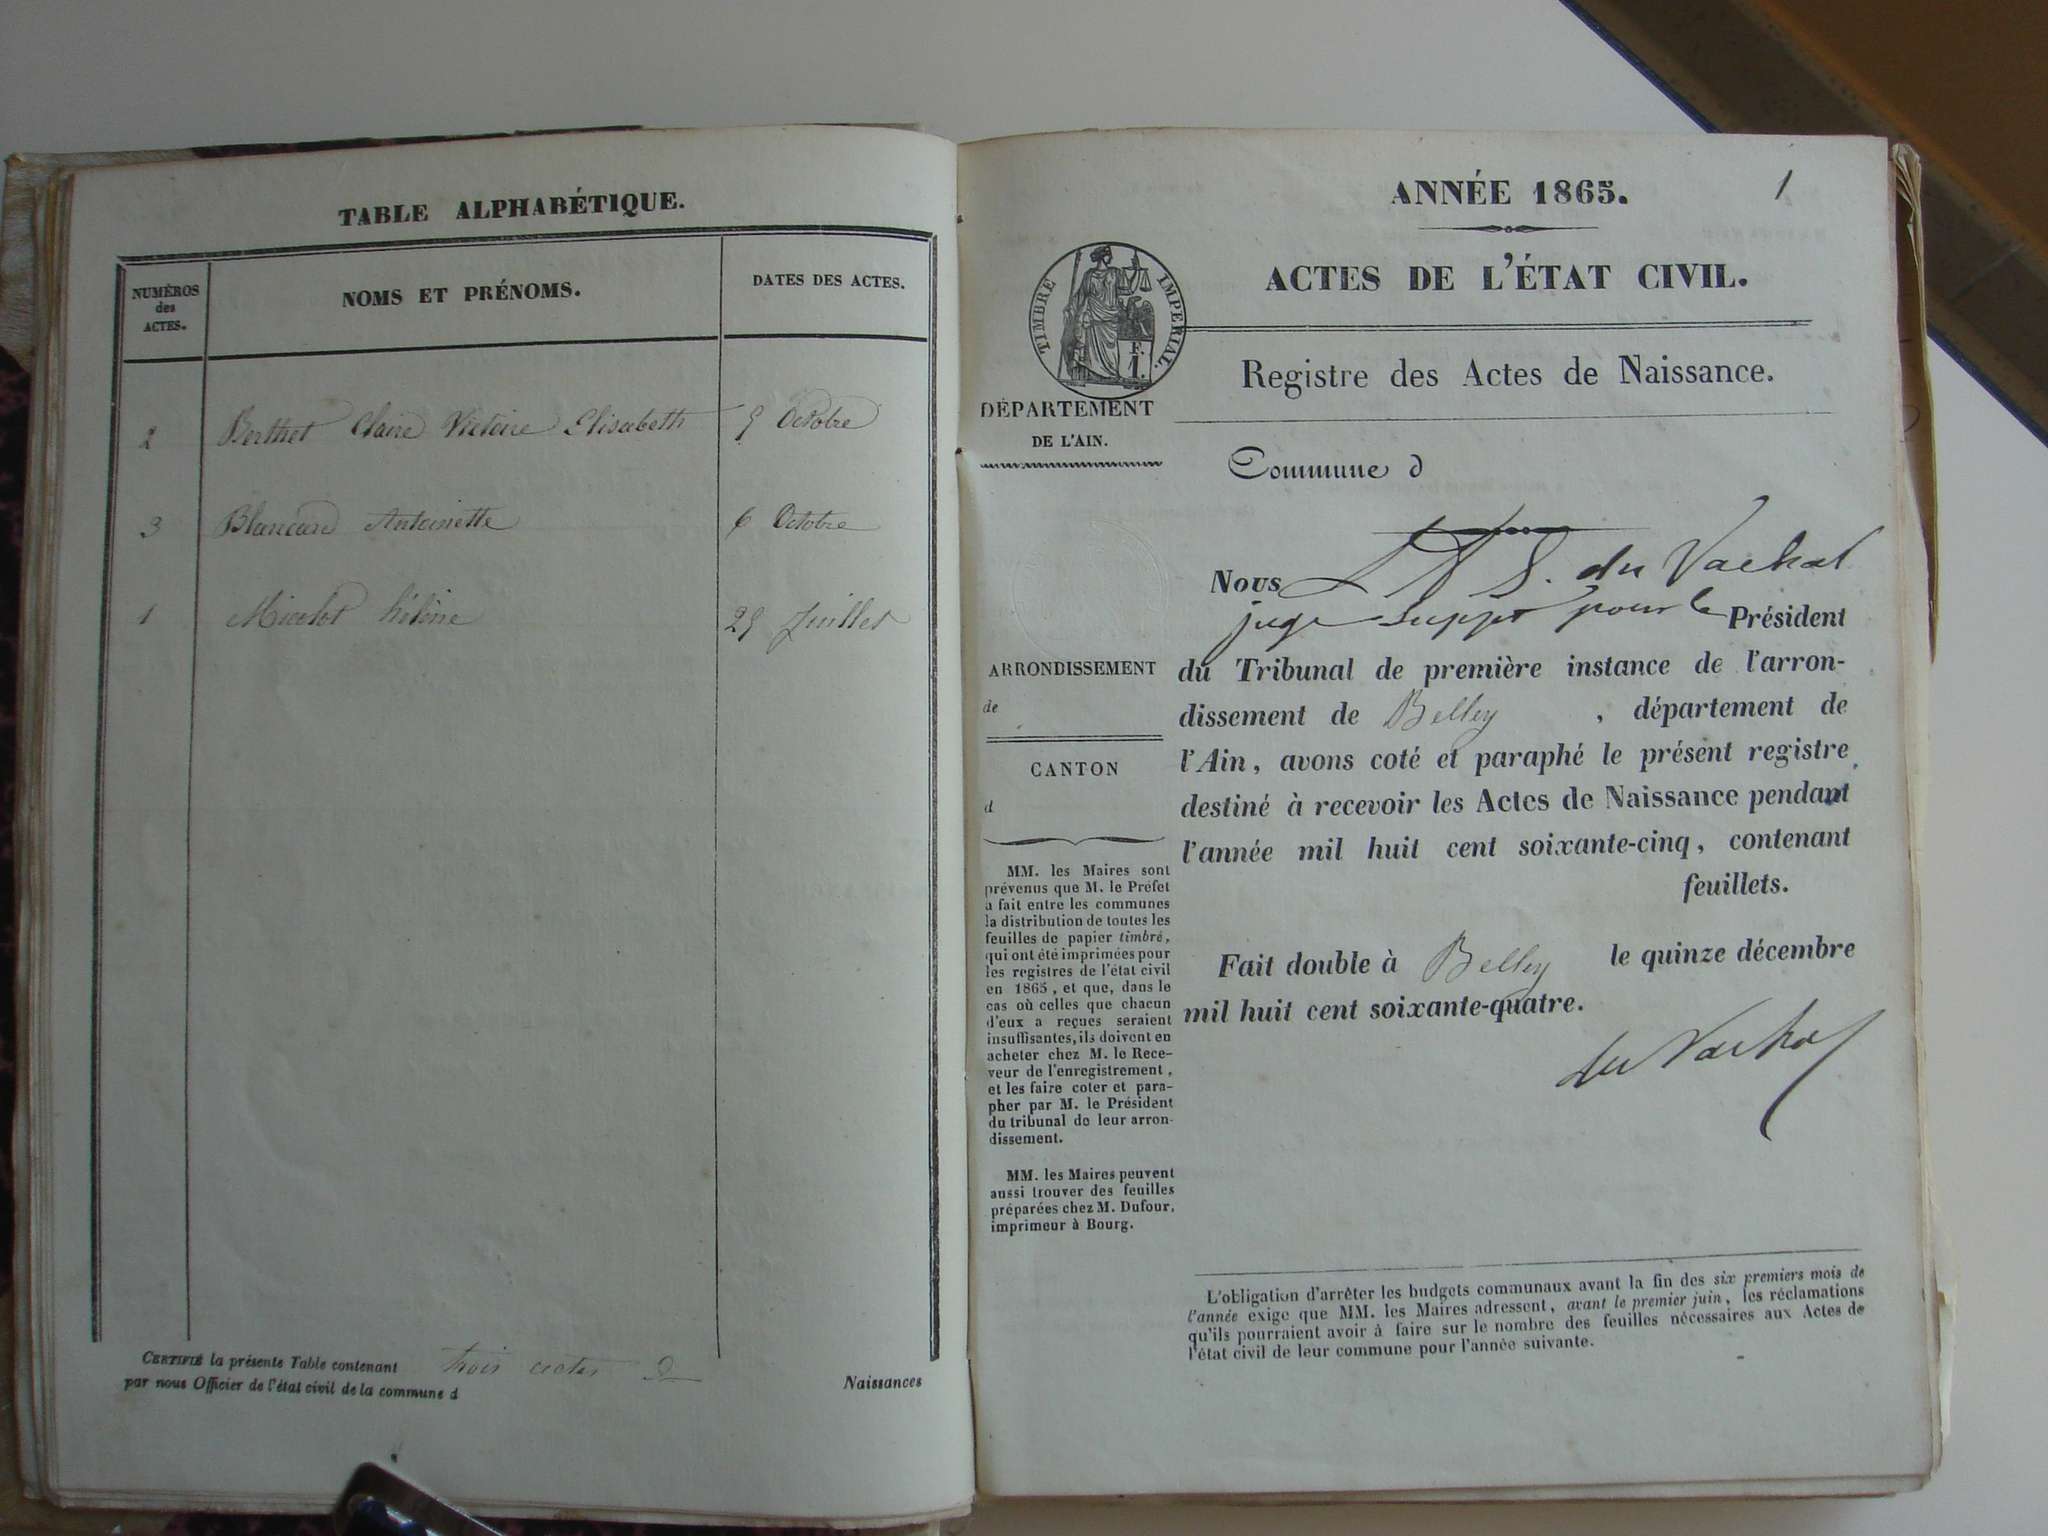 TABLE ALPHABÉTIQUE.
NUMÉROS
des
ACTES.
NOMS ET PRÉNOMS.
DATES DES ACTES.
2 Berthet Claire Victoire Elisabeth 9 Octobre
3 Blancard Antoinette 6 Octobre
1 Micolot hélène 29 Juillet
CERTIFIÉ la présente Table contenant trois actes D Naissances
par nous Officier de l'état civil de la commune d
ANNÉE 1865. 1
ACTES DE L'ÉTAT CIVIL.
TIMBRE IMPERIAL.
F.
1.
Registre des Actes de Naissance.
DÉPARTEMENT
DE L'AIN.
Commune d
Nous du Vachat
juge supp^t pour le Président
du Tribunal de première instance de l'arron-
dissement de Belley , département de
l'Ain, avons coté et paraphé le présent registre
destiné à recevoir les Actes de Naissance pendant
l'année mil huit cent soixante-cinq, contenant
feuillets.
Fait double à Belley le quinze décembre
mil huit cent soixante-quatre.
du Vachat
ARRONDISSEMENT
de
CANTON
d
MM. les Maires sont
prévenus que M. le Préfet
a fait entre les communes
la distribution de toutes les
feuilles de papier timbré,
qui ont été imprimées pour
les registres de l'état civil
en 1865, et que, dans le
cas où celles que chacun
d'eux a reçues seraient
insuffisantes, ils doivent en
acheter chez M. le Rece-
veur de l'enregistrement,
et les faire coter et para-
pher par M. le Président
du tribunal de leur arron-
dissement.
MM. les Maires peuvent
aussi trouver des feuilles
préparées chez M. Dufour,
imprimeur à Bourg.
L'obligation d'arrêter les budgets communaux avant la fin des six premiers mois de
l'année exige que MM. les Maires adressent, avant le premier juin, les réclamations
qu'ils pourraient avoir à faire sur le nombre des feuilles nécessaires aux Actes de
l'état civil de leur commune pour l'année suivante.